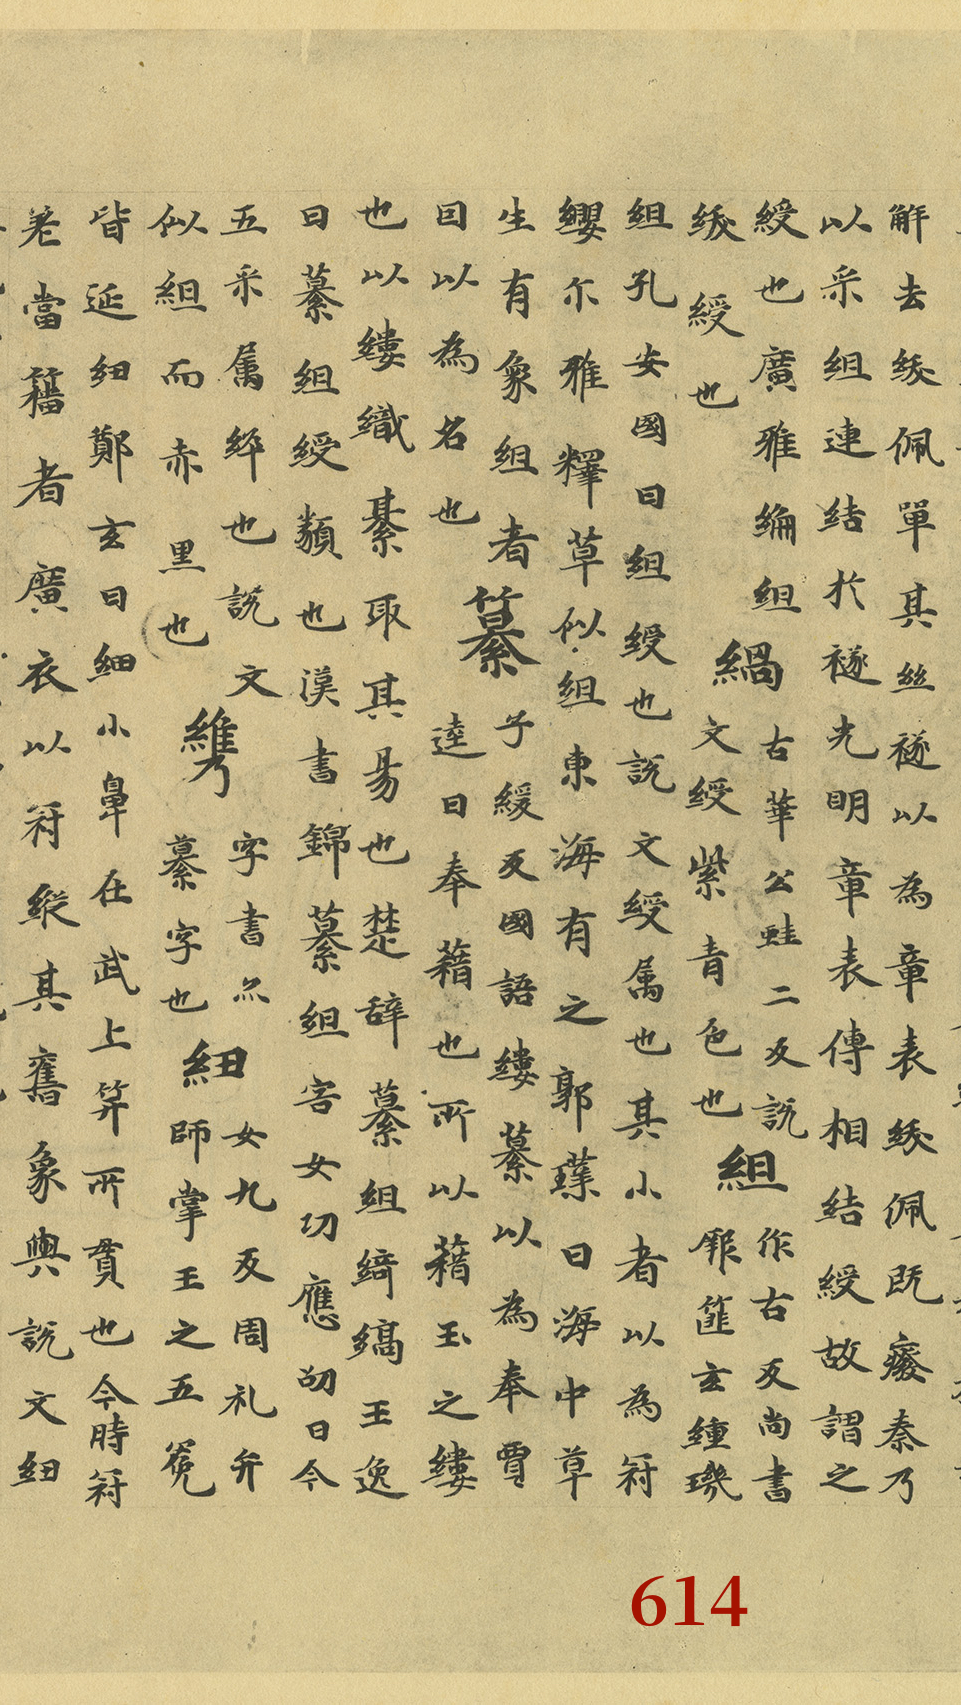 解去紱佩單其絲襚以為章表紱佩既廢秦乃
以采組連結於襚光明章表傳相結綬故謂之
綬也廣雅綸組
紱綬也
緺
古華公蛙二反說
文綬紫青色也
組
作古反尚書
厥篚玄纁璣
組孔安國曰組綬也說文綬属也其小者以為冠
纓尒雅釋草似組東海有之郭璞曰海中草
生有象組者
囙以為名也
纂
子緩反國語縷纂以為奉賈
逵曰奉藉也所以藉玉之縷
也以縷織綦取其易也楚辞纂組綺縞王逸
曰纂組綬類也漢書錦纂組害女功應劭曰今
五采属綷也說文
似組而赤黒也
字書亦
纂字也
紐
女九反周礼弁
師掌王之五冕
皆延紐鄭玄曰紐小鼻在武上笄所貫也今時冠
卷當簪者廣衣以冠縱其舊象與說文紐
614